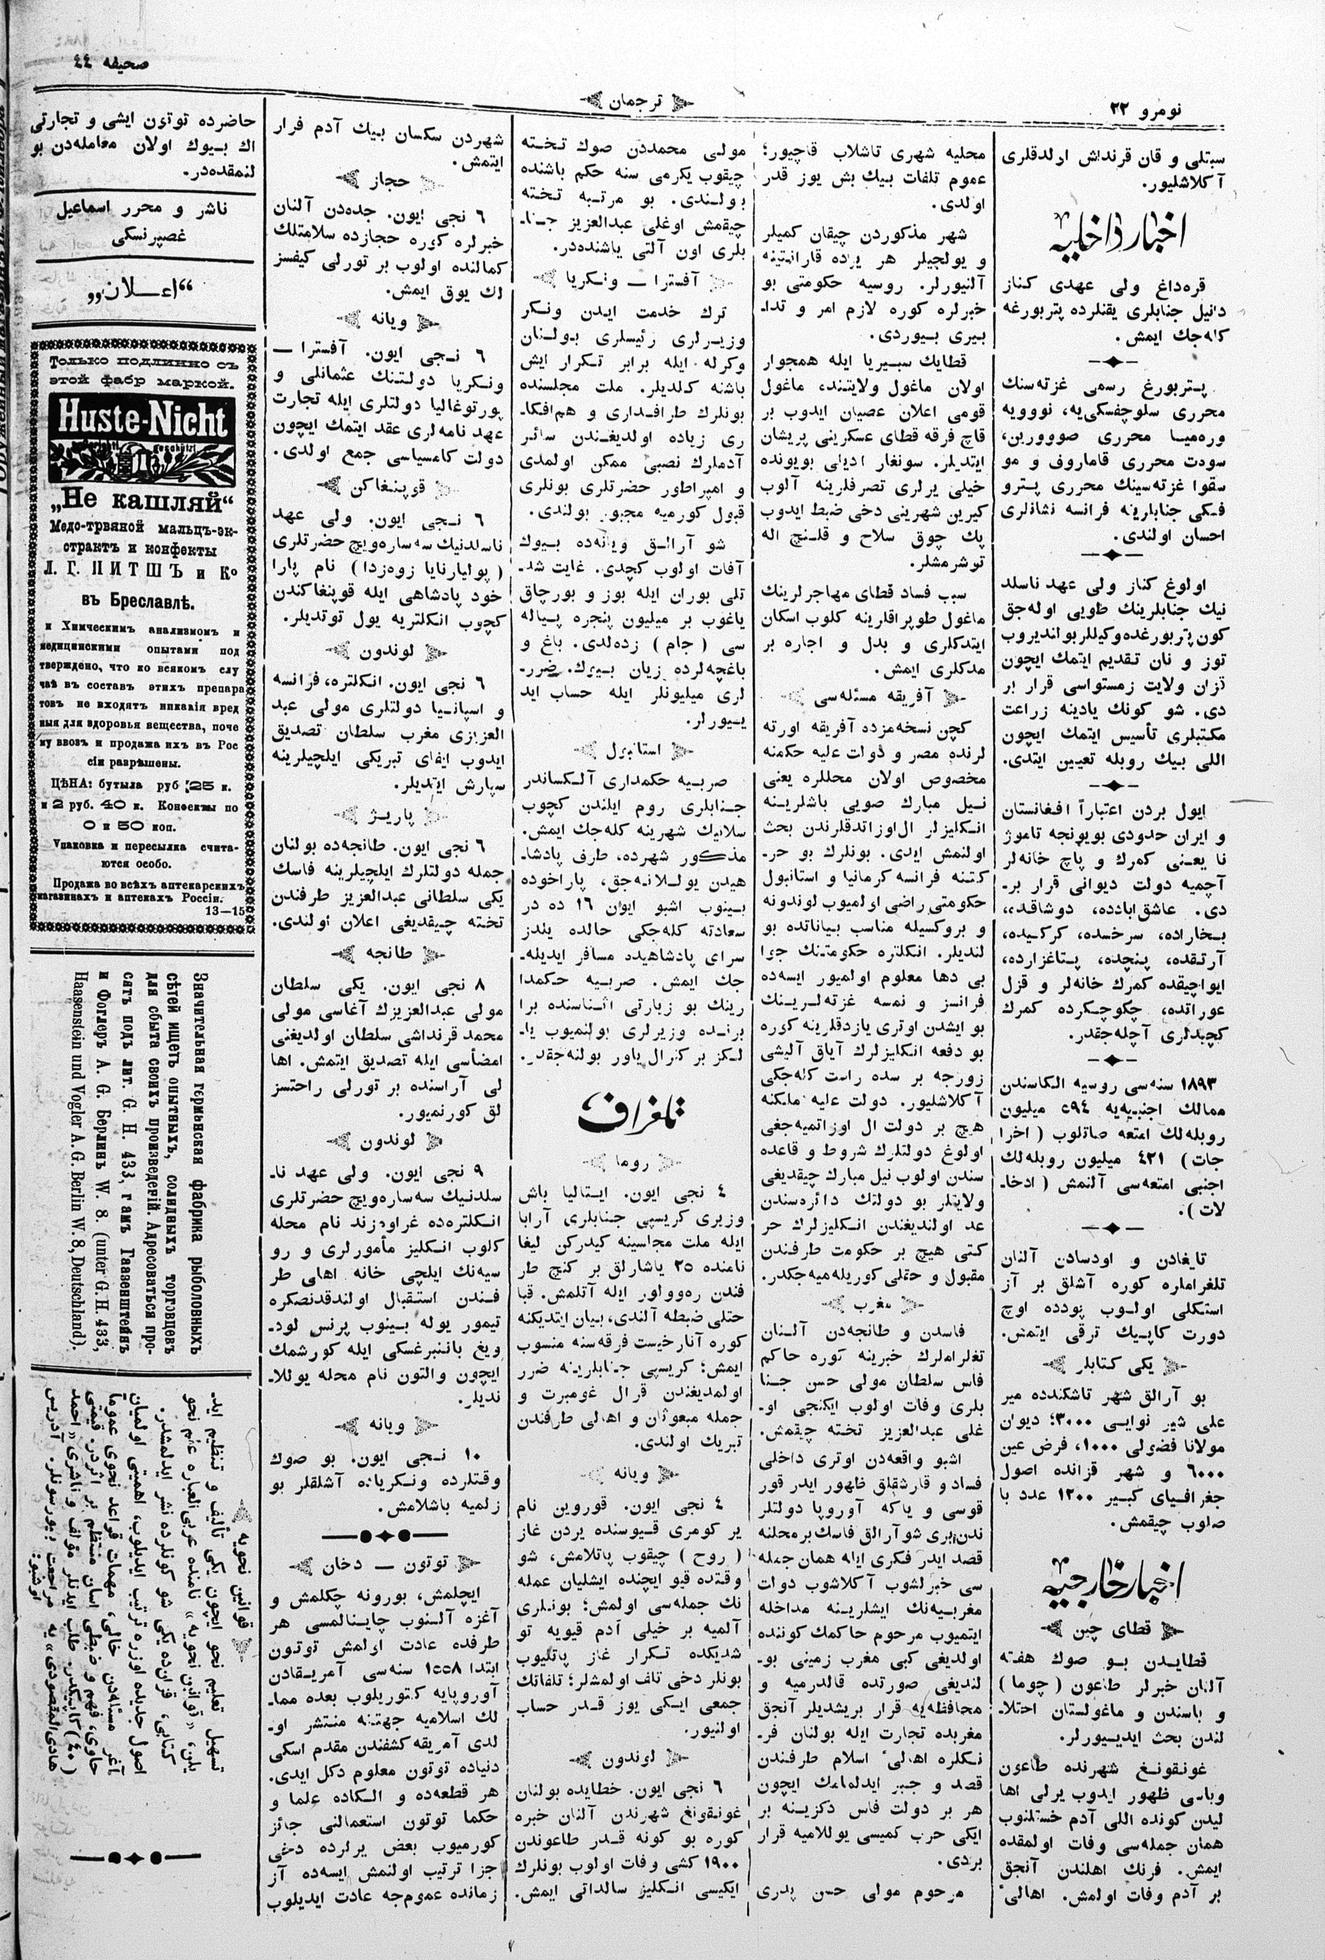 نومرو ٢٢
ترجمان
صحيفه ٤٤
سبتلى و قان قرنداش اولدقلرى
آكلاشليور.
اخبار داخليه
قره‌داغ ولى عهدى كناز
دانيل جنابلرى يقنلرده پتربورغه
كله‌جك ايمش.
پتربورغ رسمى غزته‌سنك
محررى سلوچفسكى‌يه، نووويه
وره‌ميا محررى صووورين،
سودت محررى قاماروف و مو
سقوا غزته‌سينك محررى پترو
فسكى جنابلرينه فرانسه نشانلرى
احسان اولندى.
اولوغ كناز ولى عهد ناسلد
نيك جنابلرينك طويى اوله‌جق
كون پتربورغده وكيللر بوانديروب
توز و نان تقديم ايتمك ايچون
قزان ولايت زمستواسى قرار بر
دى. شو كونك يادينه زراعت
مكتبلرى تأسيس ايتمك ايچون
اللى بيك روبله تعيين ايتدى.
ايول بردن اعتباراً افغانستان
و ايران حدودى بويونجه تاموژ
نا يعنى كمرك و پاچ خانه‌لر
آچميه دولت ديوانى قرار بر‌
دى. عاشق‌ابادده، دوشاقده،
بخاراده، سرخسده، كركيده،
آرتقده، پنچده، پتاغزارده،
ايواچيقده كمرك خانه‌لر و قزل
عوراتده، چكوجكرده كمرك
كچيدلرى آچله‌جقدر.
١٨٩٣ سنه‌سى روسيه الكاسندن
ممالك اجنبيه‌يه ٥٩٤ ميليون
روبله‌لك امتعه صاتلوب (اخرا
جات) ٤٢١ ميليون روبله‌لك
اجنبى امتعه‌سى آلنمش (ادخا‌
لات).
تايغادن و اودسادن آلنان
تلغرامله كوره آشلق بر آز
استكلى اولوب پودده اوچ
دورت كاپيك ترقى ايتمش.
يكى كتابلر
بو آرالق شهر تاشكندده مير
على شير نوايى ٣٠٠٠؛ ديوان
مولانا فضولى ١٠٠٠، فرض عين
٦٠٠٠ و شهر قزانده اصول
جغرافياى كبير ١٢٠٠ عدد با
صلوب چيقمش.
اخبار خارجيه
قطاى چين
قطايدن بو صوك هفته
آلنان خبرلر طاعون (چوما)
و باسندن و ماغولستان احتلا‌
لندن بحث ايديورلر.
غونقونغ شهرنده طاعون
وباسى ظهور ايدوب يرلى اها
ليدن كونده اللى آدم خستلنوب
همان جمله‌سى وفات اولمقده
ايمش. فرنك اهلندن آنجق
بر آدم وفات اولمش. اهالئ
محليه شهرى تاشلاب قاچيور؛
عموم تلفات بيك بش يوز قدر
اولدى.
شهر مذكوردن چيقان كميلر
و يولجيلر هر يرده قارانتينه
آلنيورلر. روسيه حكومتى بو
خبرلره كوره لازم امر و تدا‌
بيرى بيوردى.
قطايك سيبيريا ايله همجوار
اولان ماغول ولايتند، ماغول
قومى اعلان عصيان ايدوب بر
قاچ فرقه قطاى عسكرينى پريشان
ايتديلر. سونغار اديلى بويونده
خيلى يرلرى تصرفلرينه آلوب
كيرين شهرينى دخى ضبط ايدوب
پك چوق سلاح و قلنج اله
توشرمشلر.
سبب فساد قطاى مهاجرلرينك
ماغول طوپراقلرينه كلوب اسكان
ايتدكلرى و بدل و اجاره بر
مدكلرى ايمش.
آفريقه مسئله‌سى
كچن نسخه‌مزده آفريقه اورته
لرنده مصر و دولت عليه حكمنه
مخصوص اولان محللره يعنى
نيل مبارك صويى باشلرينه
انكليزلر ال اوزاتدقلرندن بحث
اولنمش ايدى. بونلرك بو حر‌
كتنه فرانسه كرمانيا و استانبول
حكومتى راضى اولميوب لوندونه
و بروكسيله مناسب بياناتده بو
لنديلر. انكلتره حكومتنك جوا
بى دها معلوم اولميور ايسه‌ده
فرانسز و نمسه غزته‌لرينك
بو ايشدن اوترى يازدقلرينه كوره
بو دفعه انكليزلرك آياق آليشى
زورجه بر سده راست كله‌جكى
آكلاشليور. دولت عليه ملكنه
هيچ بر دولت ال اوزاتميه‌جغى
اولوغ دولتلرك شروط و قاعده
سندن اولوب نيل مبارك چيقديغى
ولايتلر بو دولتك دائره‌سندن
عد اولنديغندن انكليزلرك حر
كتى هيچ بر حكومت طرفندن
مقبول و حقلى كوريله‌ميه‌جكدر.
مغرب
فاسدن و طانجه‌دن آلنان
تلغراملرك خبرينه كوره حاكم
فاس سلطان مولى حسن جنا
بلرى وفات اولوب ايكنجى او‌
غلى عبدالعزيز تخته چيقمش.
اشبو واقعه‌دن اوترى داخلى
فساد و قارشقلق ظهور ايدر قور
قوسى و ياكه آوروپا دولتلر
ندن برى شو آرالق فاسك بر محلنه
قصد ايدر فكرى ايله همان جمله
سى خبرلشوب آكلاشوب دولت
مغربيه‌نك ايشلرينه مداخله
ايتميوب مرحوم حاكمك كوننده
اولديغى كبى مغرب زمينى بو‌
لنديغى صورتده قالدرميه و
محافظه‌يه قرار بريشديلر آنجق
مغربده تجارت ايله بولنان فر‌
نكلره اهالئ اسلام طرفندن
قصد و جبر ايدلمامك ايچون
هر بر دولت فاس دكزينه بر
ايكى حرب كميسى يوللاميه قرار
بردى.
مرحوم مولى حسن پدرى
مولى محمددن صوك تخته
چيقوب يكرمى سنه حكم باشنده
بولندى. بو مرتبه تخته
چيقمش اوغلى عبدالعزيز جنا‌
بلرى اون آلتى ياشنده‌در.
آفسترا — ونكريا
ترك خدمت ايدن ونكر
وزيرلرى رئيسلرى بولنان
وكرله ايله برابر تكرار ايش
باشنه كلديلر. ملت مجلسنده
بونلرك طرافدارى و هم‌افكا‌
رى زياده اولديغندن سائر
آدملرك نصبى ممكن اولمدى
و امپراطور حضرتلرى بونلرى
قبول كورميه مجبور بولندى.
شو آرالق ويانه‌ده بيوك
آفات اولوب كچدى. غايت شد‌
تلى بوران ايله بوز و بورچاق
ياغوب بر ميليون پنجره پياله
سى (جام) زده‌لدى. باغ و
باغچه‌لرده زيان بيوك. ضرر‌
لرى ميليونلر ايله حساب ايد
يورلر.
استانبول
صربيه حكمدارى آلكساندر
جنابلرى روم ايلندن كچوب
سلانيك شهرينه كله‌جك ايمش.
مذكور شهرده، طرف پادشا‌
هيدن يوللانه‌جق، پاراخوده
بينوب اشبو ايوان ١٦ ده در
سعادته كله‌جكى حالده يلدز
سراى پادشاهيده مسافر ايديله‌
جك ايمش. صربيه حكمدا
رينك بو زيارتى اثناسنده برا
برنده وزيرلرى بولنميوب يا‌
لكز بر كنرال ياور بولنه‌جقدر.
تلغراف
روما
٤ نجى ايون. ايتاليا باش
وزيرى كريسپى جنابلرى آرابا
ايله ملت مجلسينه كيدركن ليغا
نامنده ٢٥ ياشارلق بر كنج طر
فندن ره‌وولور ايله آتلمش. قبا
حتلى ضبطه آلندى، بيان ايتديكنه
كوره آنارخيست فرقه‌سنه منسوب
ايمش؛ كريسپى جنابلرينه ضرر
اولمديغندن قرال غومبرت و
جمله مبعوثان و اهالى طرفندن
تبريك اولندى.
ويانه
٤ نجى ايون. قوروين نام
ير كومرى قيوسنده يردن غاز
(روح) چيقوب پاتلامش، شو
وقتده قيو ايچنده ايشليان عمله
نك جمله‌سى اولمش؛ بونلرى
آلميه بر خيلى آدم قيويه تو
شديكده تكرار غاز پاتليوب
بونلر دخى تلف اولمشلر؛ تلفاتك
جمعى ايكى يوز قدر حساب
اولنيور.
لوندون
٦ نجى ايون. خطايده بولنان
غونقونغ شهرندن آلنان خبره
كوره بو كونه قدر طاعوندن
١٩٠٠ كشى وفات اولوب بونلرك
ايكيسى انكليز سالداتى ايمش.
شهردن سكسان بيك آدم فرار
ايتمش.
حجاز
٦ نجى ايون. جده‌دن آلنان
خبرلره كوره حجازده سلامتلك
كمالنده اولوب بر تورلى كيفسز
لك يوق ايمش.
ويانه
٦ نجى ايون. آفسترا —
ونكريا دولتنك عثمانلى و
پورتوغاليا دولتلرى ايله تجارت
عهد نامه‌لرى عقد ايتمك ايچون
دولت كامسياسى جمع اولدى.
قوپنغاكن
٦ نجى ايون. ولى عهد
ناسلدنيك سه‌ساره‌ويچ حضرتلرى
(پوليارنايا زوه‌زدا) نام پارا
خود پادشاهى ايله قوپنغاكندن
كچوب انكلتريه يول توتديلر.
لوندون
٦ نجى ايون. انكلتره، فرانسه
و اسپانيا دولتلرى مولى عبد
العزيزى مغرب سلطان تصديق
ايدوب ايفاى تبريكى ايلچيلرينه
سپارش ايتديلر.
پاريژ
٦ نجى ايون. طانجه‌ده بولنان
جمله دولتلرك ايلچيلرينه فاسك
يكى سلطانى عبدالعزيز طرفندن
تخته چيقديغى اعلان اولندى.
طانجه
٨ نجى ايون. يكى سلطان
مولى عبدالعزيزك آغاسى مولى
محمد قرنداشى سلطان اولديغنى
امضأسى ايله تصديق ايتمش. اها
لى آراسنده بر تورلى راحتسز
لق كورنميور.
لوندون
٩ نجى ايون. ولى عهد نا‌
سلدنيك سه‌ساره‌ويچ حضرتلرى
انكلتره‌ده غراوزند نام محله
كلوب انكليز مأمورلرى و رو
سيه‌نك ايلچى خانه اهالى طر
فندن استقبال اولندقدنصكره
تيمور يوله بينوب پرنس لود‌
ويغ باتنبرغسكى ايله كورشمك
ايچون والتون نام محله يوللا‌
نديلر.
ويانه
١٠ نجى ايون. بو صوك
وقتلرده ونكرياده آشلقلر بو
زلميه باشلامش.
توتون — دخان
ايچلمش، بورونه چكلمش و
آغزه آلنوب چايناالمسى هر
طرفده عادت اولمش توتون
ابتدا ١٥٥٨ سنه‌سى آمريقادن
آوروپايه كتوريلوب بعده مما‌
لك اسلاميه جهتنه منتشر او‌
لدى آمريقه كشفندن مقدم اسكى
دنياده توتون معلوم دكل ايدى.
هر قطعه‌ده و الكاده علما و
حكما توتون استعمالنى جائز
كورميوب بعض يرلرده دخى
جزا ترتيب اولنمش ايسه‌ده آز
زمانده عموم‌جه عادت ايديلوب
حاضرده توتون ايشى و تجارتى
اك بيوك اولان معامله‌دن بو
لنمقده‌در.
ناشر و محرر اسماعيل
غصپرنسكى
“اعلان„
Только подлинно съ
этой фабр маркой.
Huste-Nicht
„Не кашляй“
Медо-трвяной мальцъ-эк-
страктъ и конфекты
Л. Г. ПИТШЪ и Ко
въ Бреславлѣ.
и Химическимъ анализмомъ и
медицинскими опытами под
тверждено, что ко всякомъ слу
чаѣ въ составъ этихъ препара
товъ не входятъ никакія вред
ныя для здоровья вещества, поче
му ввозъ и продажа ихъ въ Рос
сіи разрѣшены.
ЦѢНА: бутыла руб 25 к.
и 2 руб. 40 к. Конфекты по
0 и 50 коп.
Упаковка и пересылка счита-
ются особо.
Продажа во всѣхъ аптекарскихъ
магазинахъ и аптекахъ Россіи.
13—15
Значительная германская фабрика рыболовныхъ
сѣтей ищетъ опытныхъ, солидныхъ торговцевъ
для сбыта своихъ произведеній. Адресоваться про-
сятъ подъ лит. G. H. 433, г амъ Гаазенштейнъ
и Фоглеръ A. G. Берлинъ W. 8. (unter G. H. 433,
Haasenstein und Vogler A. G. Berlin W. 8, Deutschland).
قوانين نحويه
تسهيل تعليم نحو ايچون يكى تأليف و تنظيم ايد‌
يلن، «قوانين نحويه» نامنده عربى‌العباره علم نحو
كتابى، قزان‌ده يكى شو كونلرده نشر ايدلمشدر.
اصول جديده اوزره ترتيب ايديلوب، اهميتى اولميان
آغر مسئله‌دن خالى، مهمات قواعد نحوى عموماً
حاوى، فهم و ضبطى آسان منتظم بر اثردر. قيمتى
(٤٠) كاپيكدر. طلب ايدنلر مؤلف و ناشرى «احمد
هادى‌المقصودى» يه مراجعت بيورسونلر. آدريس
اوشبو: